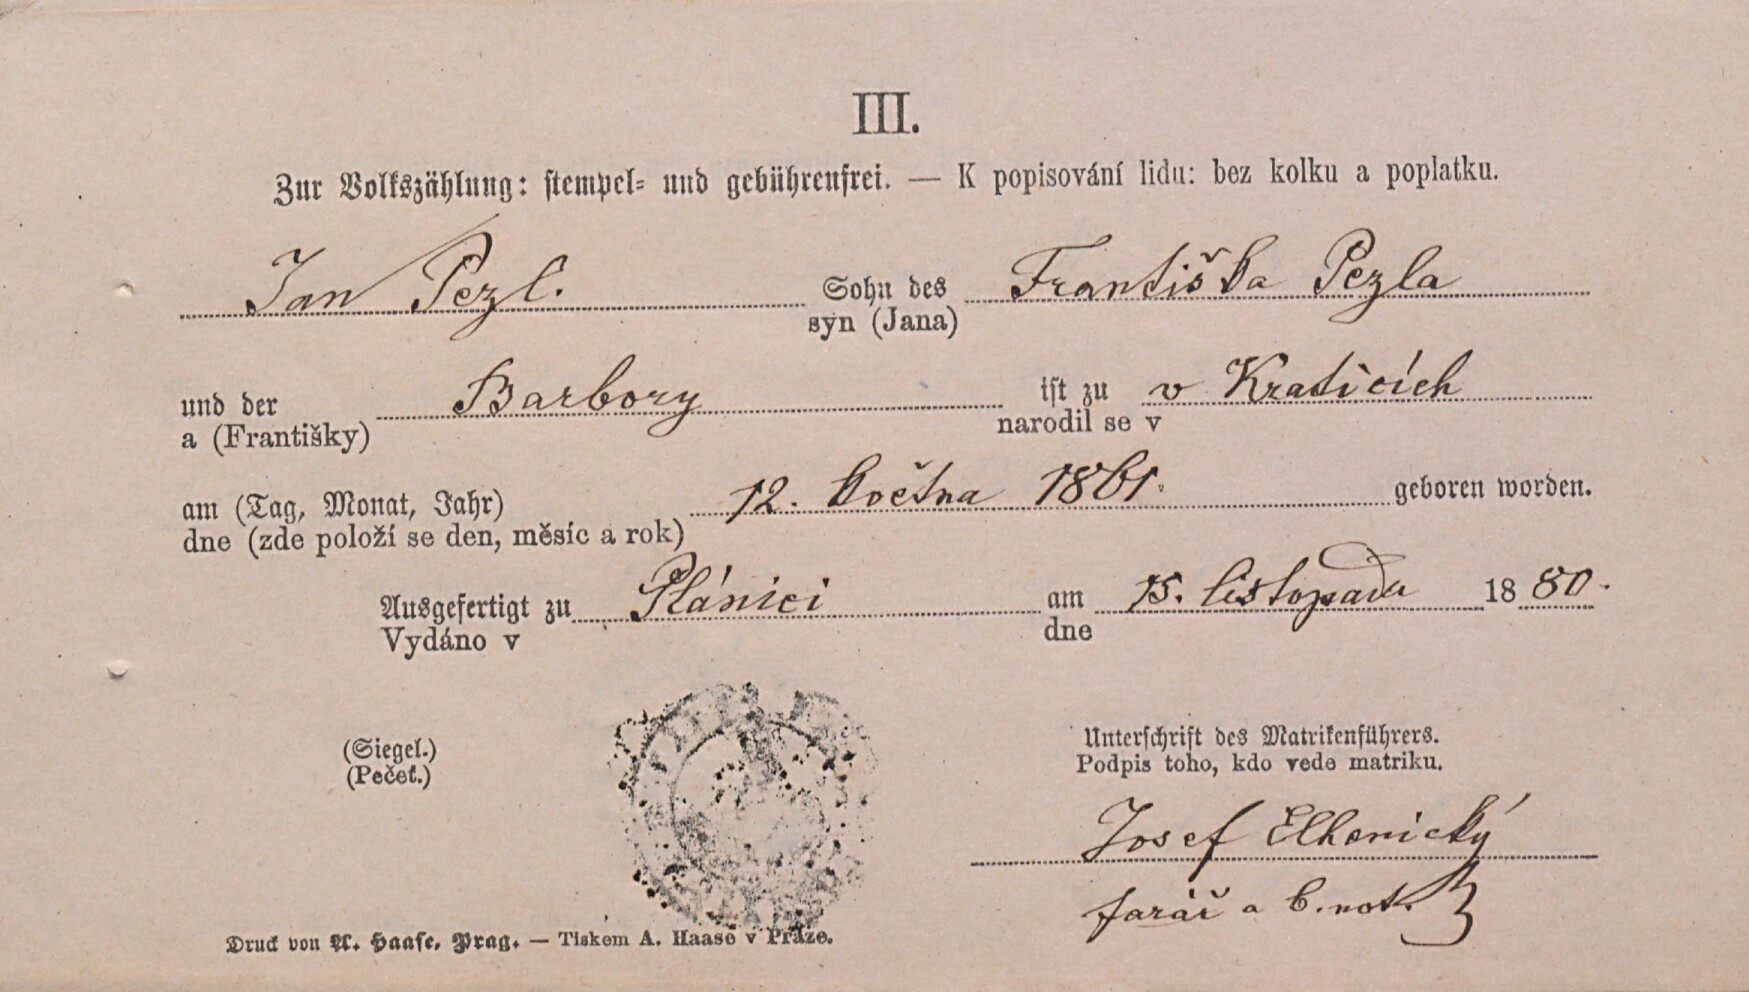 III.
Zur Volkszählung: stempel- und gebührenfrei. — K popisování lidu: bez kolku a poplatku.
Jan Pezl. Sohn des Františka Pezla
syn (Jana)
und der Barbory ist zu v Kraticích
a (Františky) narodil se v
am (Tag, Monat, Jahr) 12. května 1861. geboren worden.
dne (zde položí se den, měsíc a rok)
Ausgefertigt zu Plánici am 15. listopadu 1880.
Vydáno v dne
(Siegel.)
(Pečeť.)
Unterschrift des Matrikenführers.
Podpis toho, kdo vede matriku.
Josef Elhenický
farář a b. not.
Druck von A. Haase, Prag. — Tiskem A. Haase v Praze.